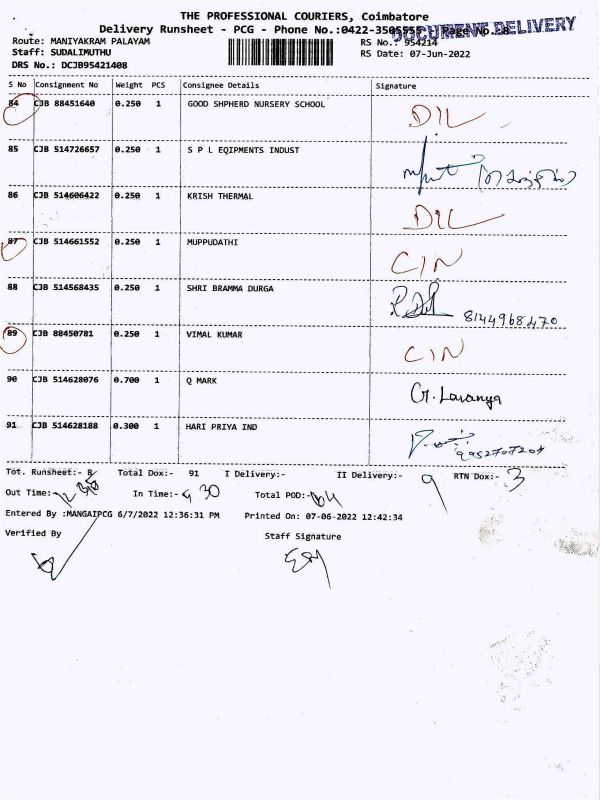 THE PROFESSIONAL COURIERS, Coimbatore
Delivery Runsheet - PCG - Phone No.:0422-3505555 Page No.:8
DOCUMENT DELIVERY
Route: MANIYAKRAM PALAYAM
RS No.: 954214
Staff: SUDALIMUTHU
RS Date: 07-Jun-2022
DRS No.: DCJB95421408
S No Consignment No Weight PCS Consignee Details Signature
84 CJB 88451640 0.250 1 GOOD SHPHERD NURSERY SCHOOL D/L
85 CJB 514726657 0.250 1 S P L EQIPMENTS INDUST
86 CJB 514606422 0.250 1 KRISH THERMAL D/L
87 CJB 514661552 0.250 1 MUPPUDATHI C/N
88 CJB 514568435 0.250 1 SHRI BRAMMA DURGA 8144968470
89 CJB 88450781 0.250 1 VIMAL KUMAR C/N
90 CJB 514628076 0.700 1 Q MARK G. Lavanya
91 CJB 514628188 0.300 1 HARI PRIYA IND 9952707204
Tot. Runsheet:- 8 Total Dox:- 91 I Delivery:- II Delivery:- 9 RTN Dox:- 3
Out Time:- In Time:- 9 30 Total POD:-
Entered By :MANGAIPCG 6/7/2022 12:36:31 PM Printed On: 07-06-2022 12:42:34
Verified By Staff Signature